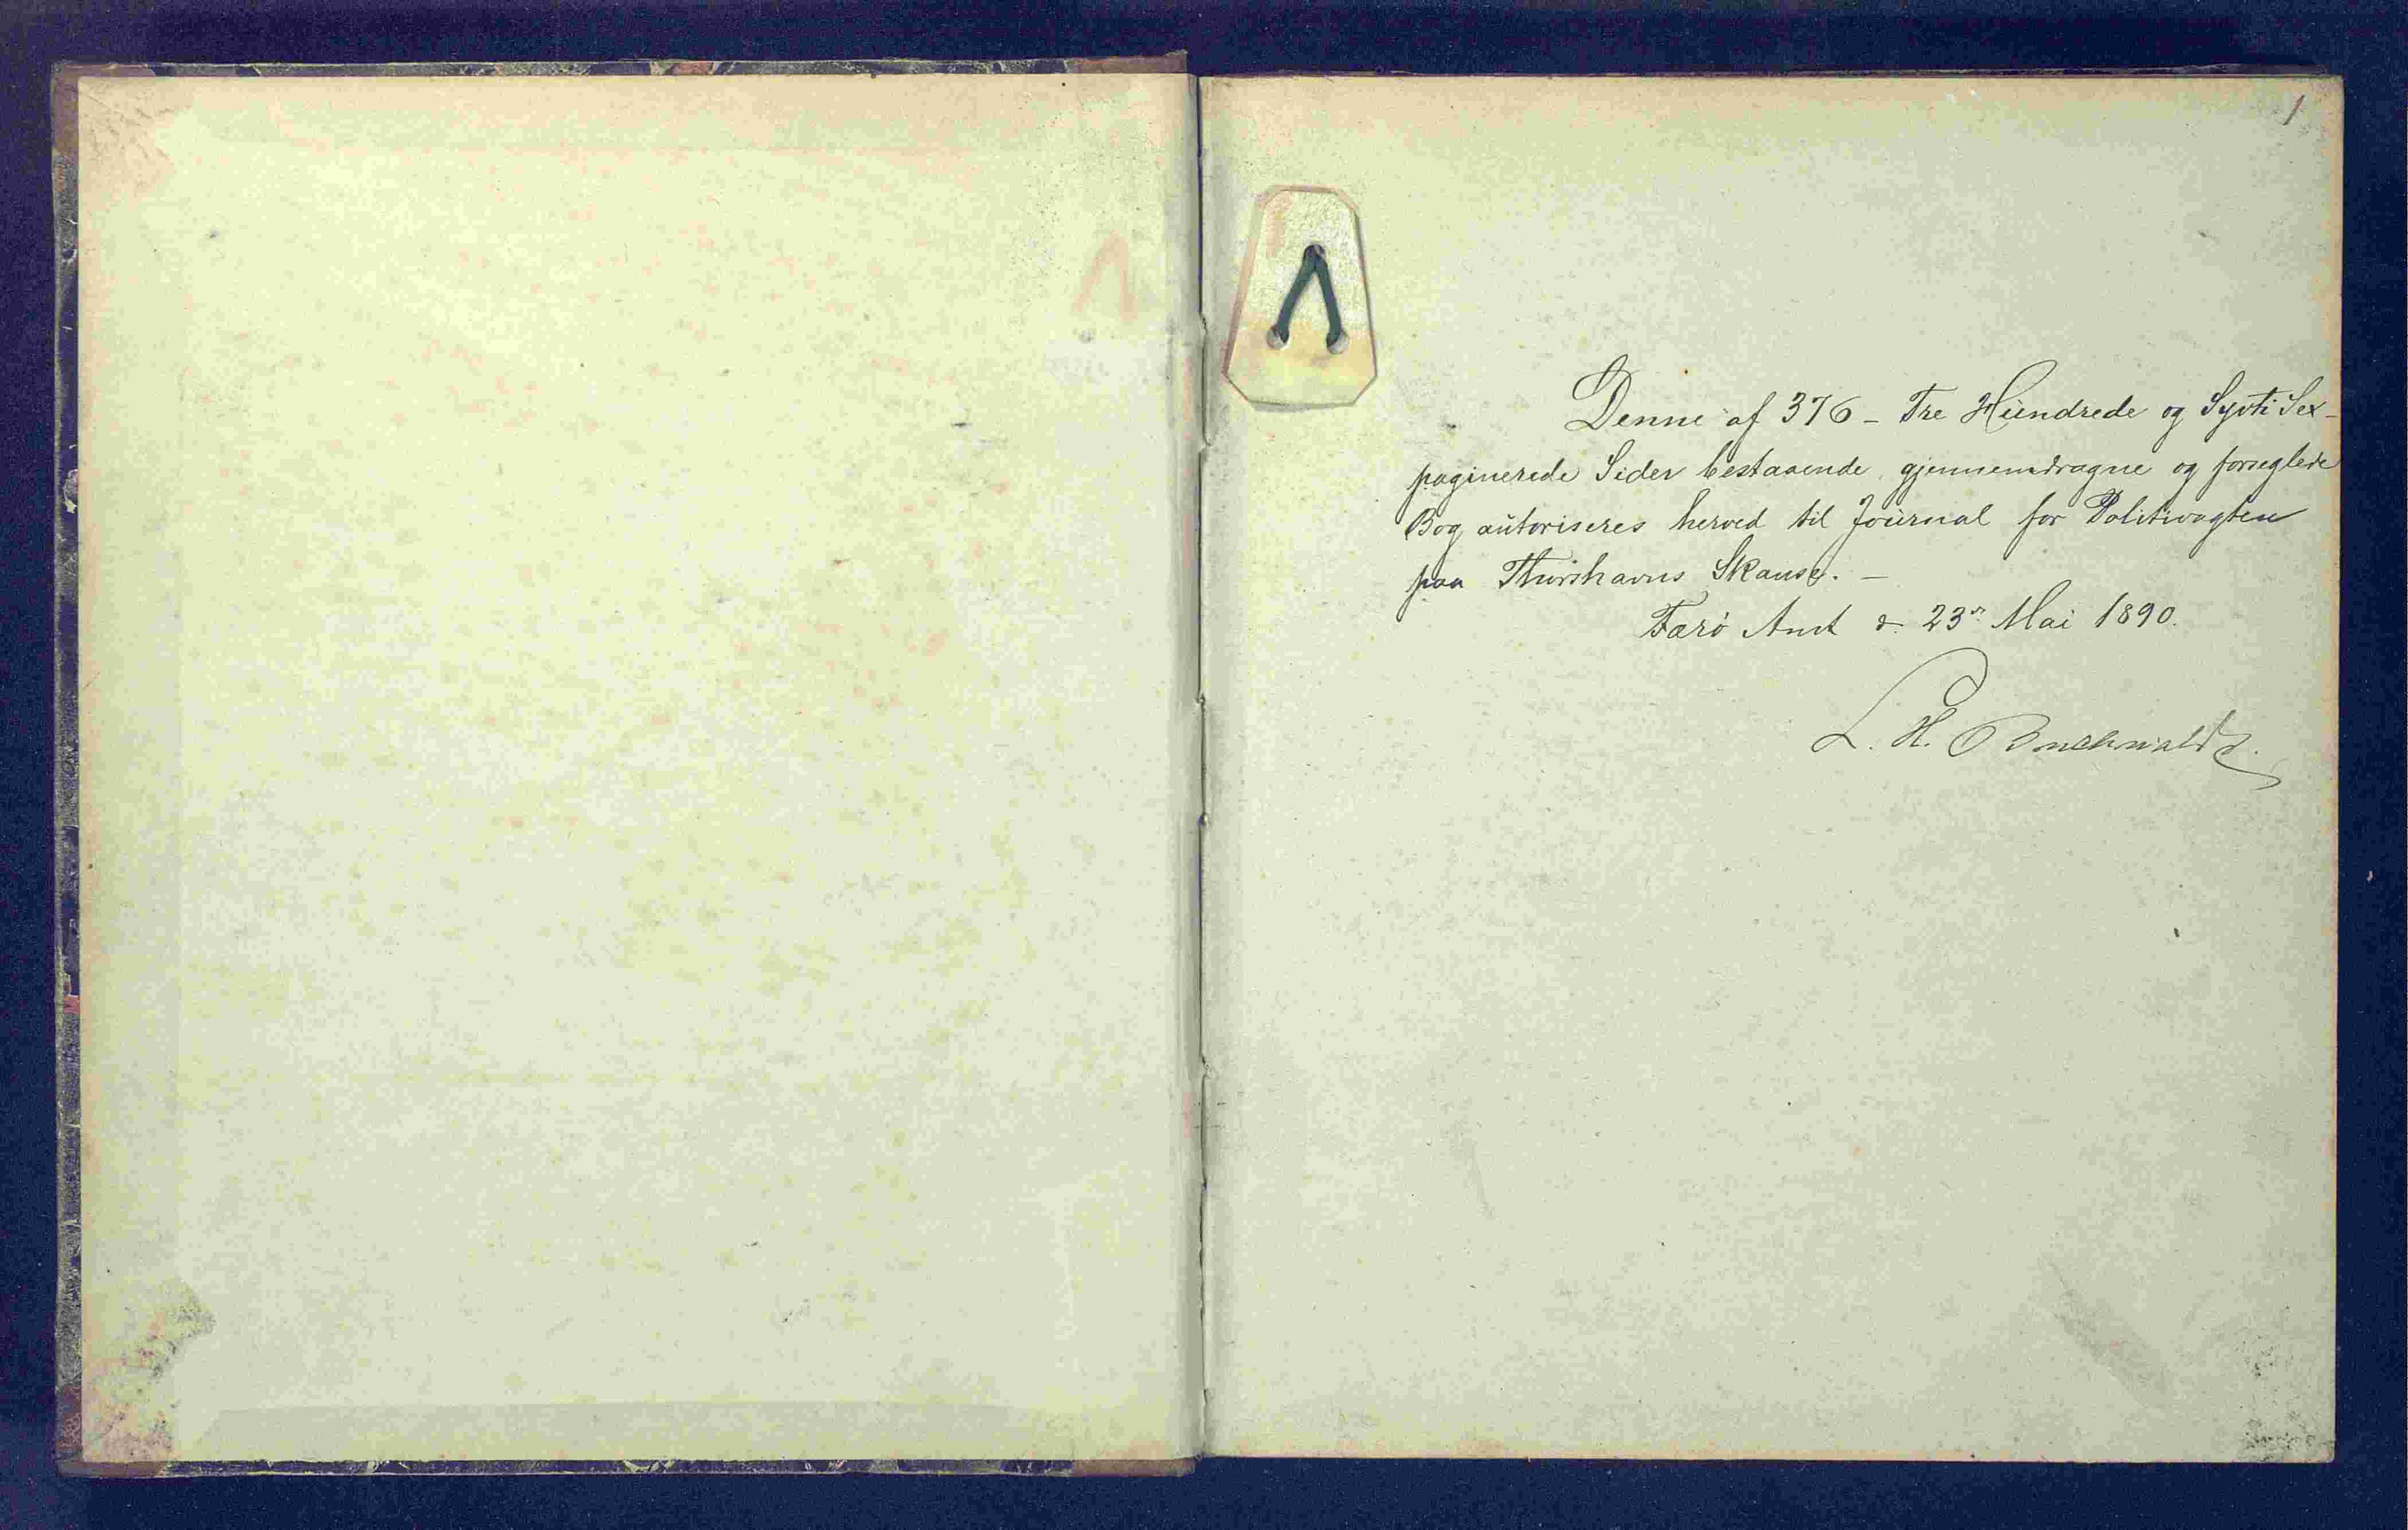 1
Denne af 376 - Tre Hundrede og Syvti Sex -
paginerede Sider bestaaende, gjennemdragne og forseglede
Bog autoriseres herved til Journal for Politivagten
paa Thorshavns Skanse. -
Færø Amt d. 23de Mai 1890.
L. H. Buchwaldt.